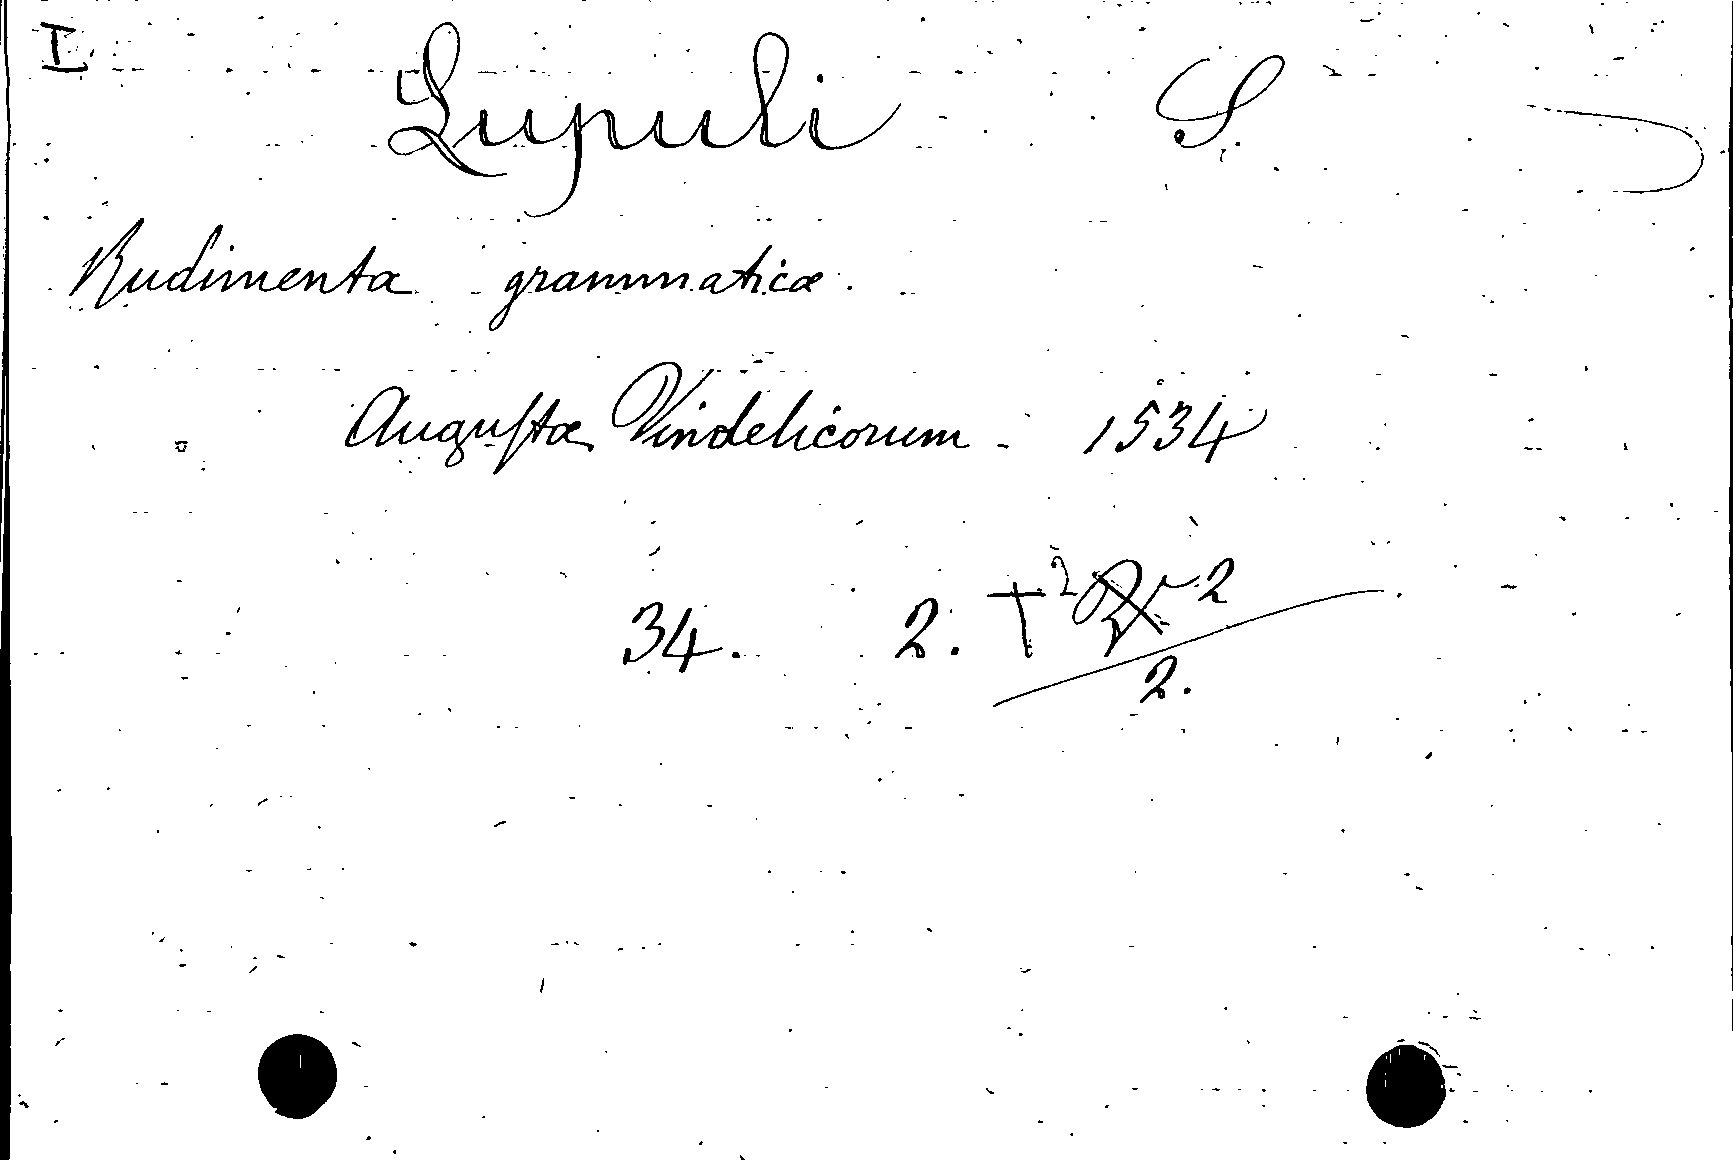 I
Lupuli S.
Rudimenta grammaticæ.
Auguſtæ Vindelicorum 1534
34. 2. + 2 2
2.